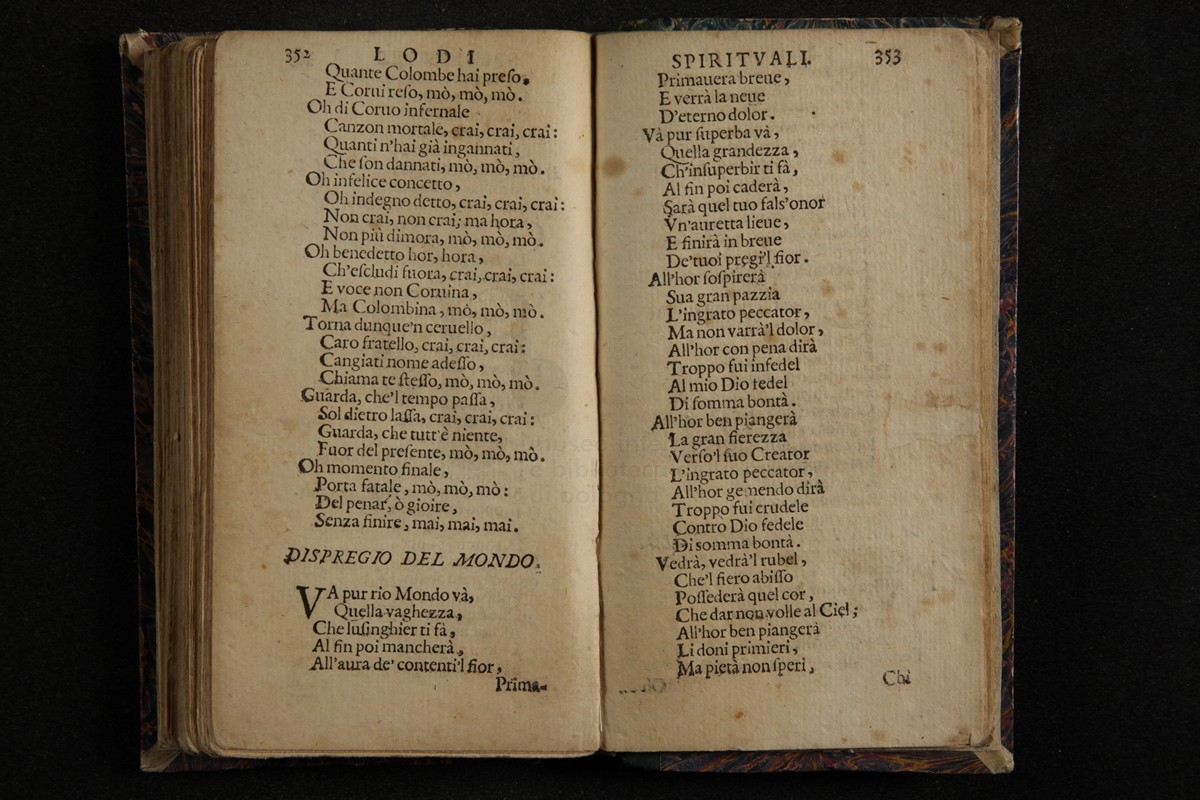 352 LODI
Quante Colombe hai preſo.
E Corui reſo, mò, mò, mò.
Oh di Coruo infernale
Canzon mortale, crai, crai, crai:
Quanti n'hai già ingannati,
Che ſon dannati, mò, mò, mò.
Oh infelice concetto,
Oh indegno detto, crai, crai, crai:
Non crai, non crai; ma hora,
Non più dimora, mò, mò, mò.
Oh benedetto hor, hora,
Ch'eſcludi fuora, crai, crai, crai:
E voce non Coruina,
Ma Colombina, mò, mò, mò.
Torna dunque'n ceruello,
Caro fratello, crai, crai, crai:
Cangiati nome adeſſo,
Chiama te ſteſſo, mò, mò, mò.
Guarda, che'l tempo paſſa,
Sol dietro laſſa, crai, crai, crai:
Guarda, che tutt'è niente,
Fuor del preſente, mò, mò, mò.
Oh momento finale,
Porta fatale, mò, mò, mò:
Del penar, ò gioire,
Senza finire, mai, mai, mai.
DISPREGIO DEL MONDO.
VA pur rio Mondo và,
Quella vaghezza,
Che luſinghier ti fà,
Al fin poi mancherà,
All'aura de' contenti'l fior,
Prima-
SPIRITVALI. 353
Primauera breue,
E verrà la neue
D'eterno dolor.
Và pur ſuperba và,
Quella grandezza,
Ch'inſuperbir ti fà,
Al fin poi caderà,
Sarà quel tuo fals'onor
Vn'auretta lieue,
E finirà in breue
De'tuoi pregi'l fior.
All'hor ſoſpirerà
Sua gran pazzia
L'ingrato peccator,
Ma non varrà'l dolor,
All'hor con pena dirà
Troppo fui infedel
Al mio Dio fedel
Di ſomma bontà.
All'hor ben piangerà
La gran fierezza
Verſo'l ſuo Creator
L'ingrato peccator,
All'hor gemendo dirà
Troppo fui crudele
Contro Dio fedele
Di somma bontà.
Vedrà, vedrà'l rubel,
Che'l fiero abiſſo
Poſſederà quel cor,
Che dar non volle al Ciel;
All'hor ben piangerà
Li doni primieri,
Ma pietà non ſperi,
Chi